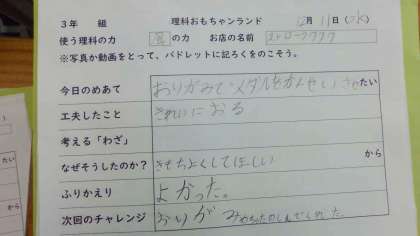 ３年　組　理科おもちゃランド　12月11日（水）
使う理科の力　の力　お店の名前
※写真か動画をとって、パドレットに記ろくをのこそう。
今日のめあて　おりがみでメダルをかんせいさせたい
工夫したこと　きれいにおる
考える「わざ」
なぜそうしたのか？　きもちよくしてほしい　から
ふりかえり　よかった。
次回のチャレンジ　おりが
たい
から